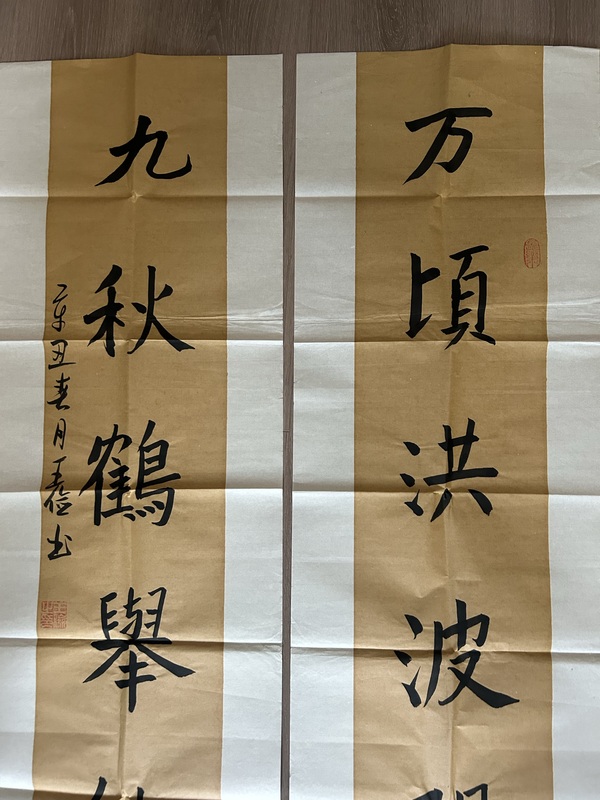 万頃洪波
九秋鶴舉
辛丑春月